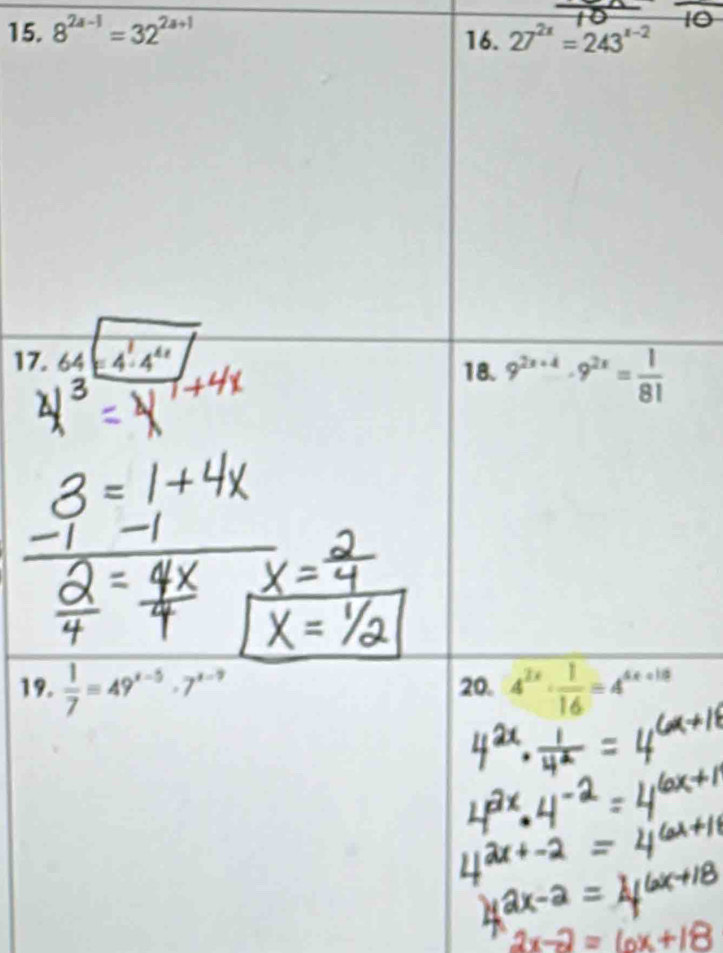 10 10
15. 8^{2a-1} = 32^{2a+1}
16. 27^{2x} = 243^{x-2}
17. 64 = 4^1 · 4^{4x}
4^3 = 4^{1+4x}
3 = 1+4x
-1 -1
2/4 = 4x/4 x = 2/4
x = 1/2
18. 9^{2x+4} · 9^{2x} = 1/81
19. 1/7 = 49^{x-5} · 7^{x-9}
20. 4^{2x} · 1/16 = 4^{6x+18}
4^{2x} · 1/4^2 = 4^{6x+18}
4^{2x} · 4^{-2} = 4^{6x+1
4^{2x+-2} = 4^{6x+18}
4^{2x-2} = 4^{6x+18}
2x-2 = 6x+18